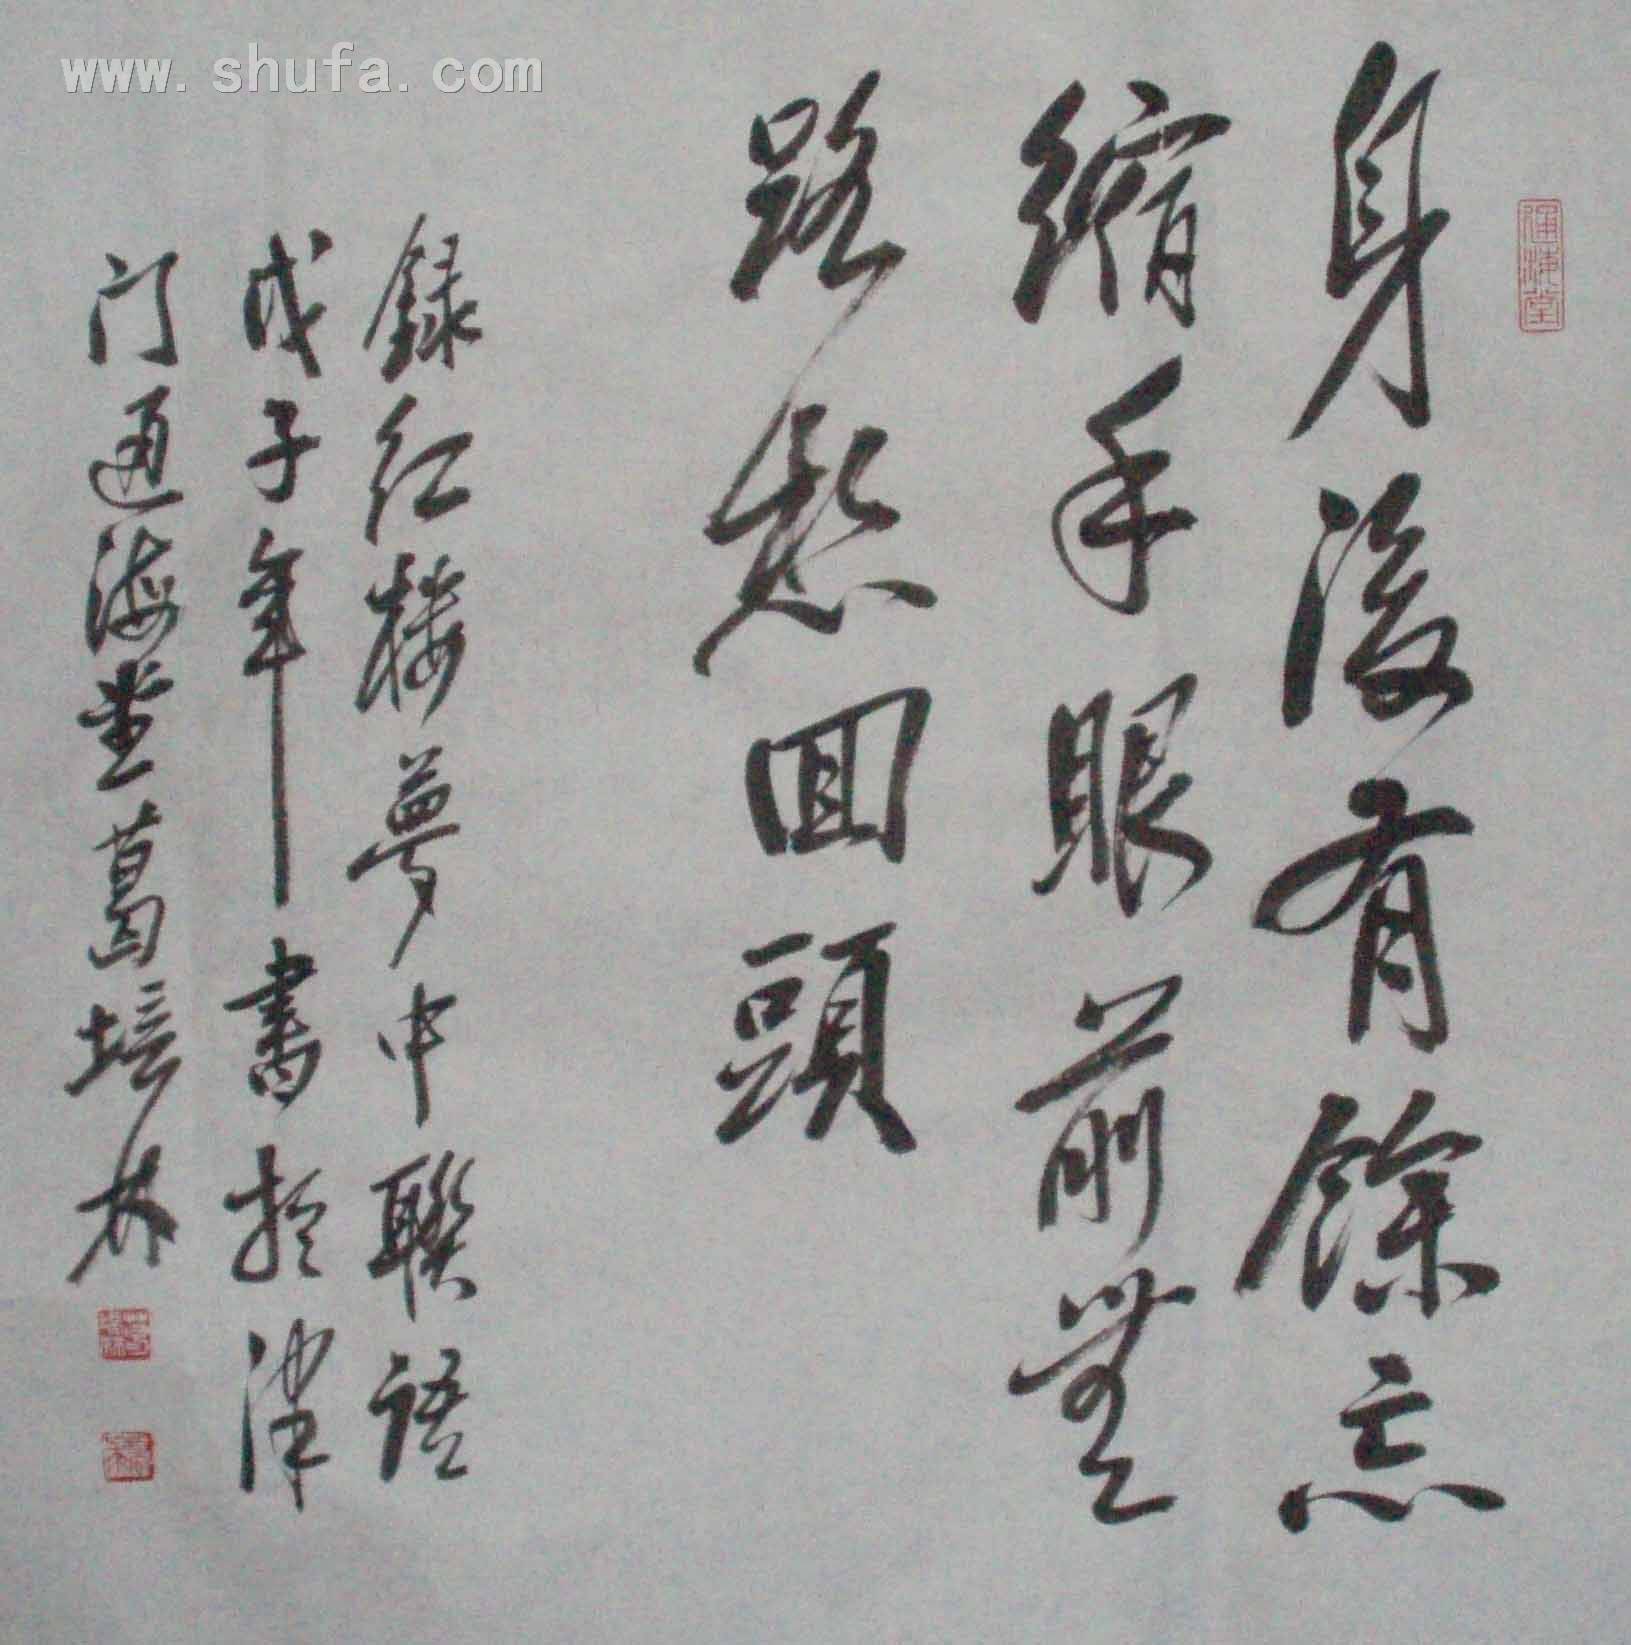 身後有餘忘
縮手眼前無
路想回頭
錄红楼夢中聯语
戊子年書於津
门通海堂葛培林
通海堂
www.shufa.com